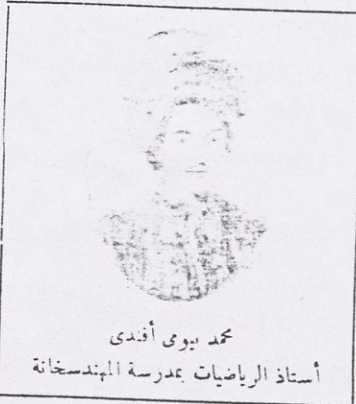 محمد بيومى أفندى
أستاذ الرياضيات بمدرسة المهندسخانة